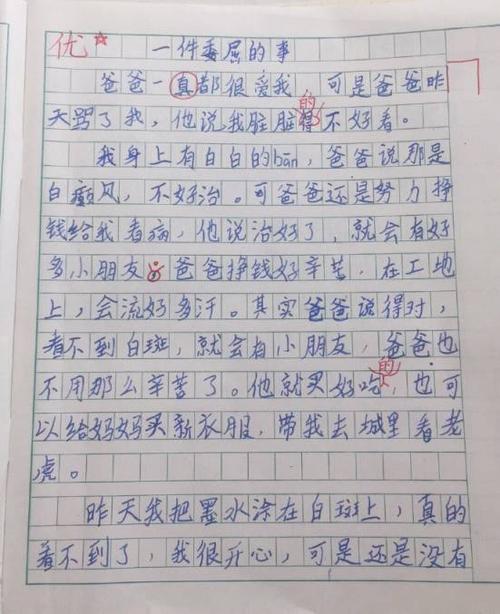 优☆
一件委屈的事
爸爸一真都很爱我 可是爸爸昨
天骂了我，他说我脏脏得的不好看。
我身上有白白的bān，爸爸说那是
白癜风，不好治。可爸爸还是努力挣
钱给我看病，他说治好了，就会有好
多小朋友。爸爸挣钱好辛苦，在工地
上，会流好多汗。其实爸爸说得对，
看不到白斑，就会有小朋友，爸爸也
不用那么辛苦了。他就买好吃的，也可
以给妈妈买新衣服，带我去城里看老
虎。
昨天我把墨水涂在白斑上，真的
看不到了，我很开心，可是还是没有